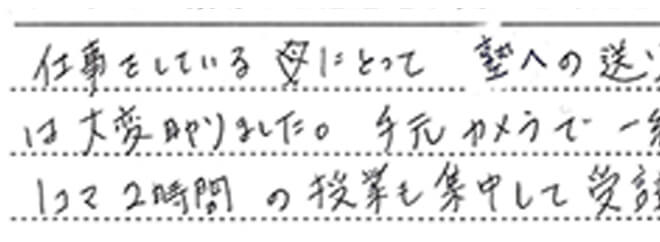 仕事をしている母にとって 塾への送り
は大変助かりました。 手元カメラで 一
1コマ 2時間 の授業も集中して受講